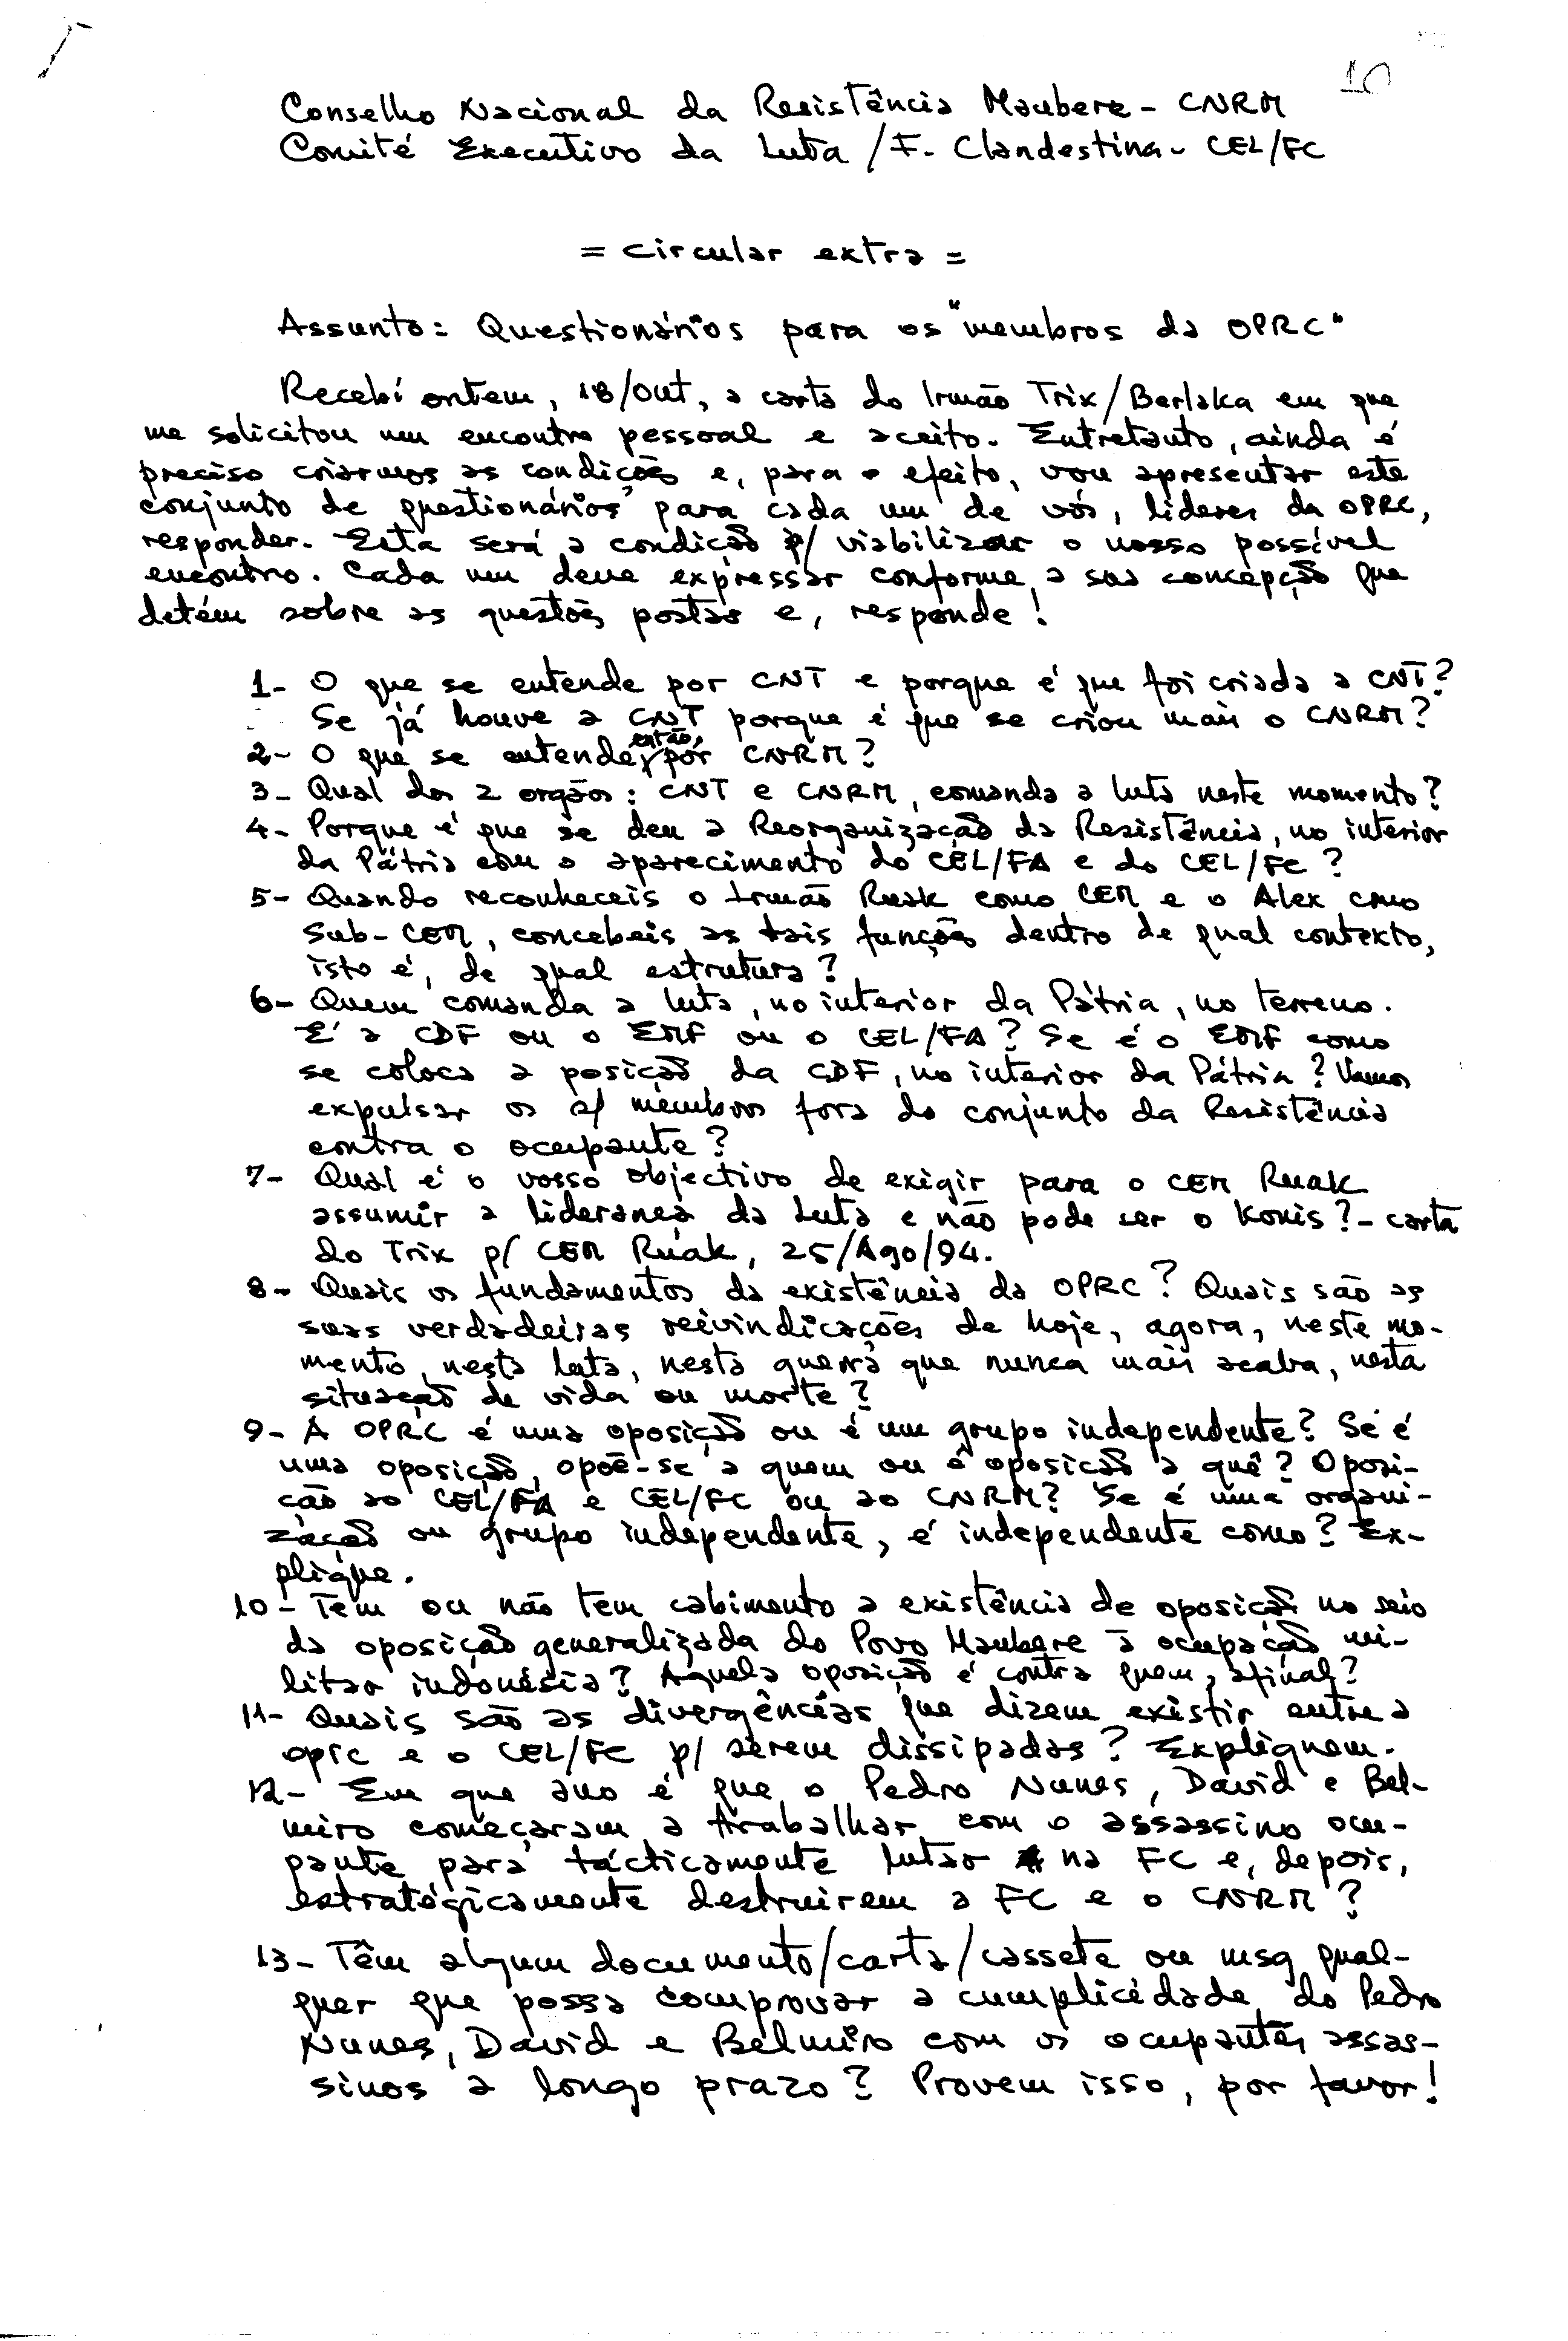 10
Conselho Nacional da Resistência Maubere - CNRM
Comité Executivo da Luta / F. Clandestina - CEL/FC
= circular extra =
Assunto: Questionários para os "membros da OPRC"
Recebí ontem, 18/Out, a carta do Irmão Trix/Berlaka em que
me solicitou um encontro pessoal e aceito. Entretanto, ainda é
preciso criarmos as condições e, para o efeito, vou apresentar este
conjunto de questionários para cada um de vós, líderes da OPRC,
responder. Esta será a condição p/ viabilizar o nosso possível
encontro. Cada um deve expressar conforme a sua concepção que
detém sobre as questões postas e, responde!
1- O que se entende por CNT e porque é que foi criada a CNT?
Se já houve a CNT porque é que se criou mais o CNRM?
2- O que se entende, então, por CNRM?
3- Qual dos 2 orgãos: CNT e CNRM, comanda a luta neste momento?
4- Porque é que se deu a Reorganização da Resistência, no interior
da Pátria com o aparecimento do CEL/FA e do CEL/FC?
5- Quando reconheceis o Irmão Ruak como CEM e o Alex como
Sub-CEM, concebeis as tais funções dentro de qual contexto,
isto é, de qual estrutura?
6- Quem comanda a luta, no interior da Pátria, no terreno.
É a CDF ou o EMF ou o CEL/FA? Se é o EMF como
se coloca a posição da CDF, no interior da Pátria? Vamos
expulsar os s/ membros fora do conjunto da Resistência
contra o ocupante?
7- Qual é o vosso objectivo de exigir para o CEM Ruak
assumir a liderança da Luta e não pode ser o Konis? - carta
do Trix p/ CEM Ruak, 25/Ago/94.
8- Quais os fundamentos da existência da OPRC? Quais são as
suas verdadeiras reivindicações de hoje, agora, neste mo-
mento, nesta luta, nesta guerra que nunca mais acaba, nesta
situação de vida ou morte?
9- A OPRC é uma oposição ou é um grupo independente? Se é
uma oposição, opõe-se a quem ou é oposição a quê? Oposi-
ção ao CEL/FA e CEL/FC ou ao CNRM? Se é uma organi-
zação ou grupo independente, é independente como? Ex-
plique.
10- Tem ou não tem cabimento a existência de oposição no seio
da oposição generalizada do Povo Maubere à ocupação mi-
litar indonésia? Aquela oposição é contra quem, afinal?
11- Quais são as divergências que dizem existir entre a
oprc e o CEL/FC p/ serem dissipadas? Expliquem.
12- Em que ano é que o Pedro Nunes, David e Bel-
miro começaram a trabalhar com o assassino ocu-
pante para tácticamente lutar na FC e, depois,
estratégicamente destruirem a FC e o CNRM?
13- Têm algum documento/carta/cassete ou msg qual-
quer que possa comprovar a cumplicidade do Pedro
Nunes, David e Belmiro com os ocupantes assas-
sinos a longo prazo? Provem isso, por favor!